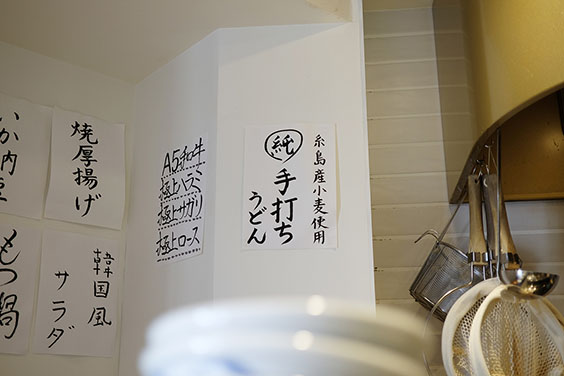 糸島産小麦使用
純
手打ち
うどん
A5和牛
極上ハラミ
極上サガリ
極上ロース
焼厚揚げ
韓国風
サラダ
もつ鍋